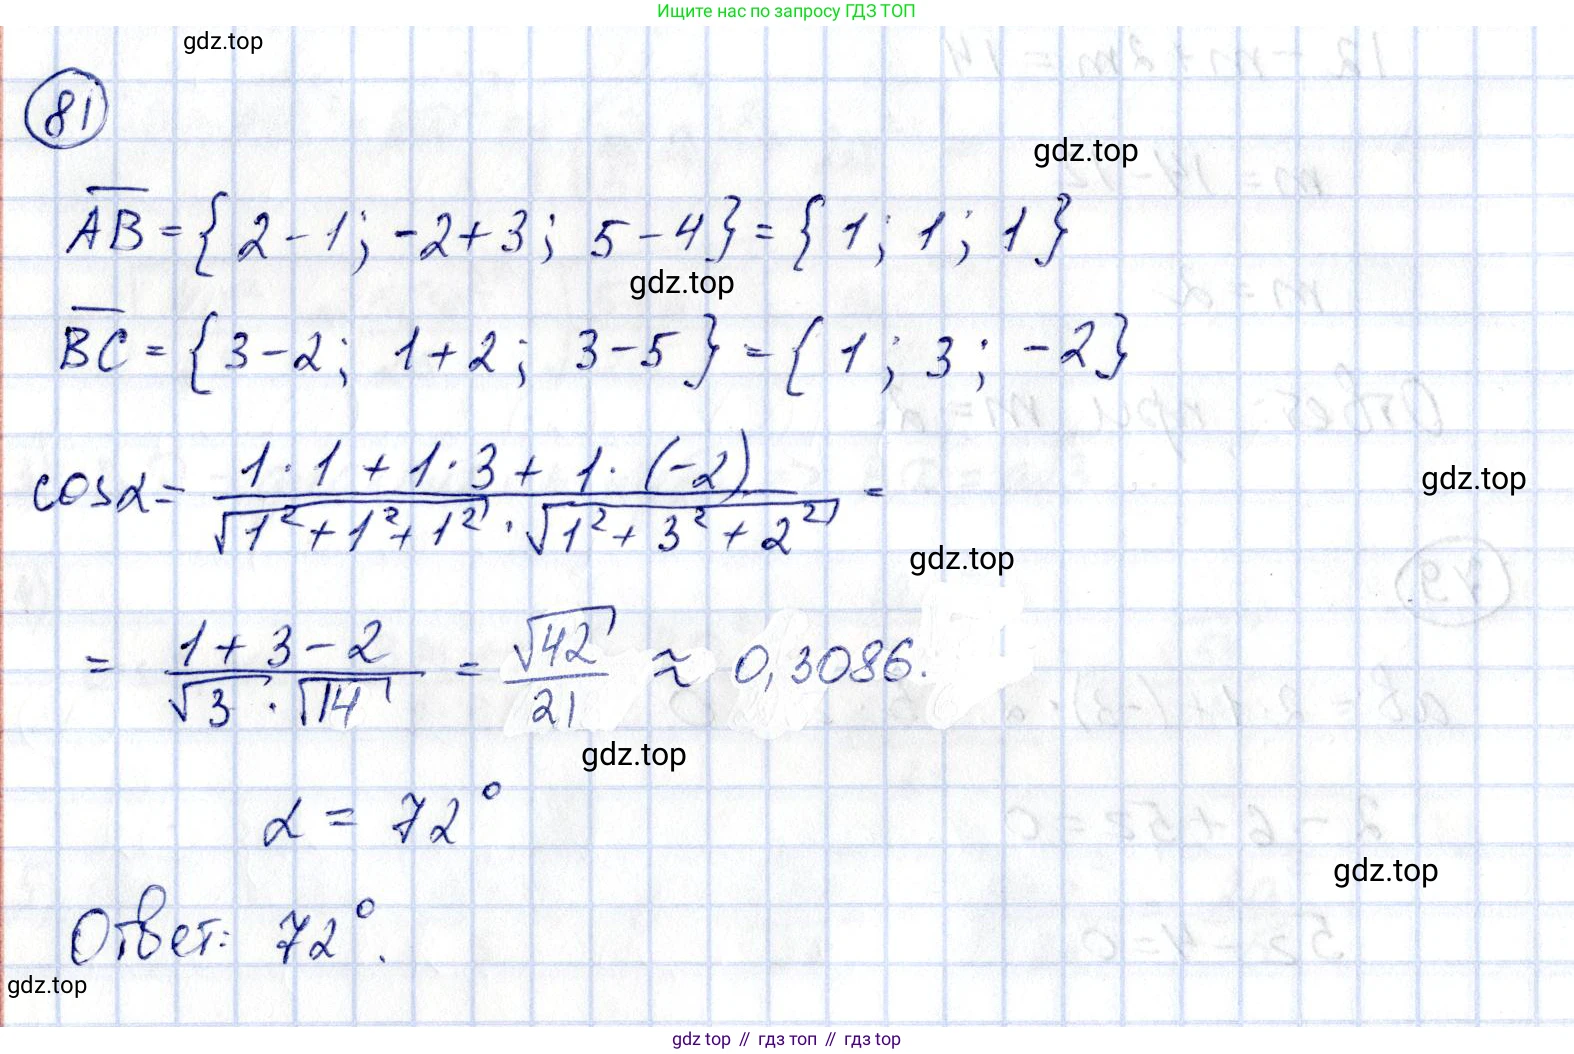 Ищите нас по запросу ГДЗ ТОП
gdz.top
81
gdz.top
AB = {2 - 1; -2 + 3; 5 - 4} = {1; 1; 1}
gdz.top
BC = {3 - 2; 1 + 2; 3 - 5} = {1; 3; -2}
cosα = (1·1 + 1·3 + 1·(-2)) / (√(1² + 1² + 1²) · √(1² + 3² + 2²)) =
gdz.top
gdz.top
= (1 + 3 - 2) / (√3 · √14) = √42 / 21 ≈ 0,3086.
gdz.top
α = 72°
gdz.top
Ответ: 72°.
gdz.top
gdz top // гдз топ // gdz top